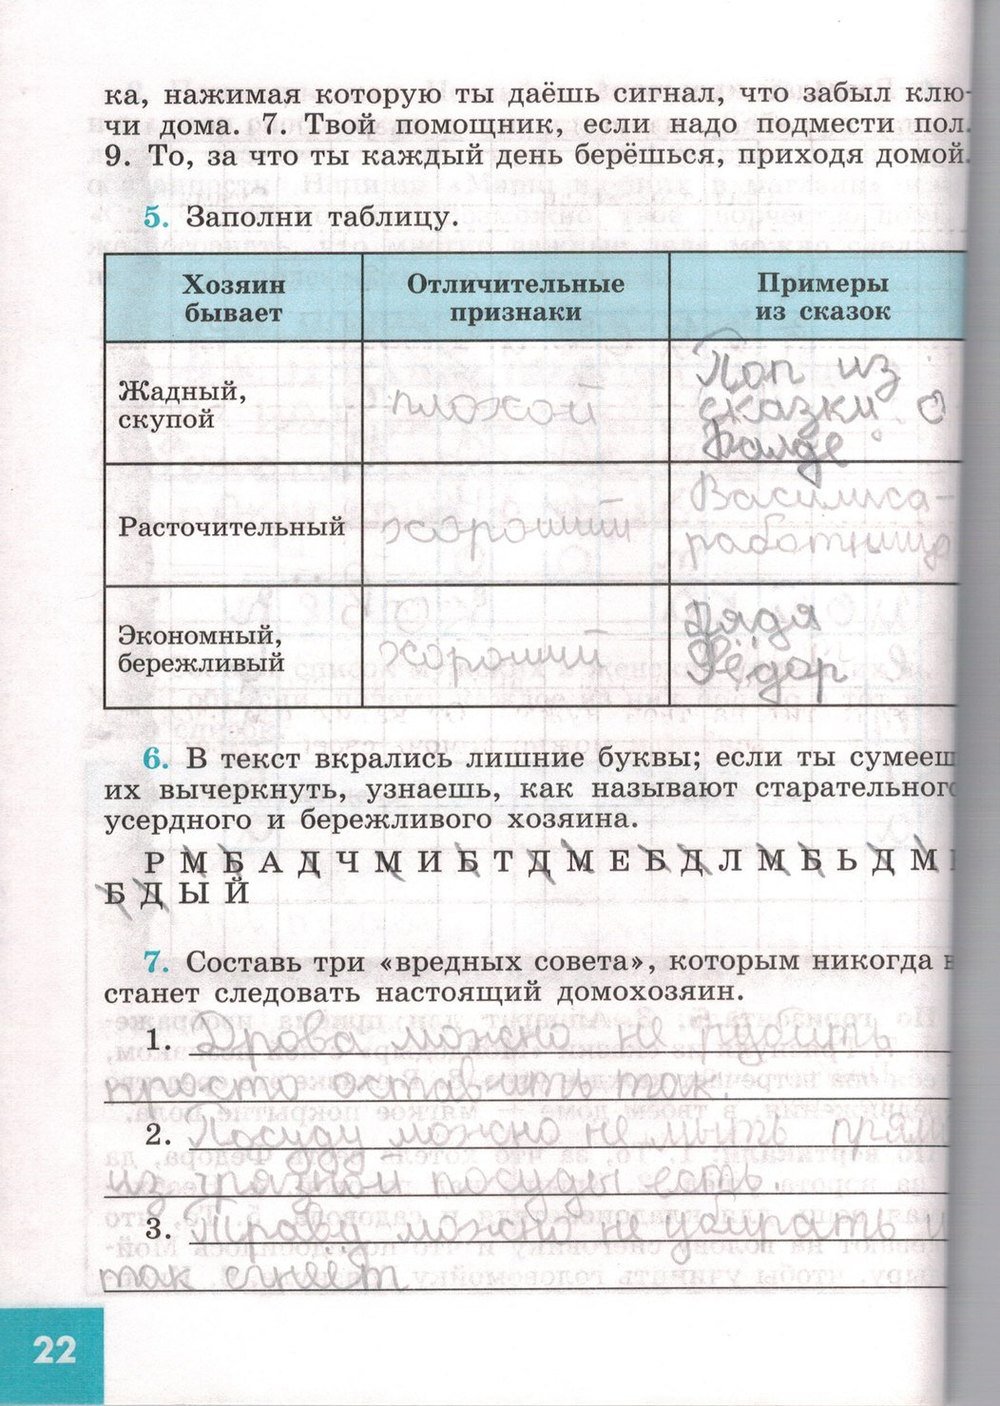 ка, нажимая которую ты даёшь сигнал, что забыл клю-
чи дома. 7. Твой помощник, если надо подмести пол.
9. То, за что ты каждый день берёшься, приходя домой.
5. Заполни таблицу.
Хозяин бывает
Отличительные признаки
Примеры из сказок
Жадный, скупой
плохой
Поп из сказки о Балде
Расточительный
хороший
Василиса-работница
Экономный, бережливый
хороший
Дядя Фёдор
6. В текст вкрались лишние буквы; если ты сумееш
их вычеркнуть, узнаешь, как называют старательног
усердного и бережливого хозяина.
Р М Б А Д Ч М И Б Т Д М Е Б Д Л М Б Ь Д М
Б Д Ы Й
7. Составь три «вредных совета», которым никогда
станет следовать настоящий домохозяин.
1. Дрова можно не рубить
просто оставить так.
2. Посуду можно не мыть прям
из грязной посуды есть.
3. Траву можно не убирать и
так сгнеёт
22